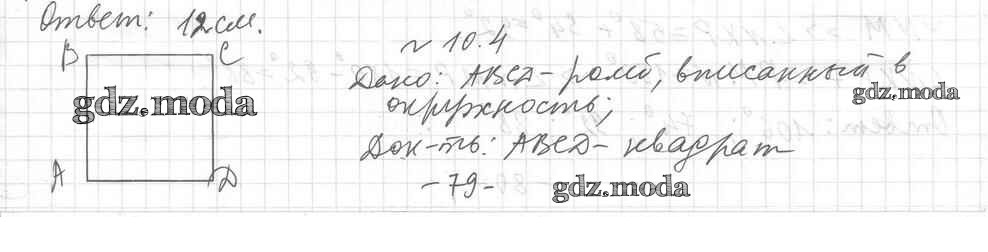 Ответ: 12 см.
B C
A D
~ 10.4
Дано: ABCD - ромб, вписанный в
окружность;
Док-ть: ABCD - квадрат
- 79 -
gdz.moda
gdz.moda
gdz.moda